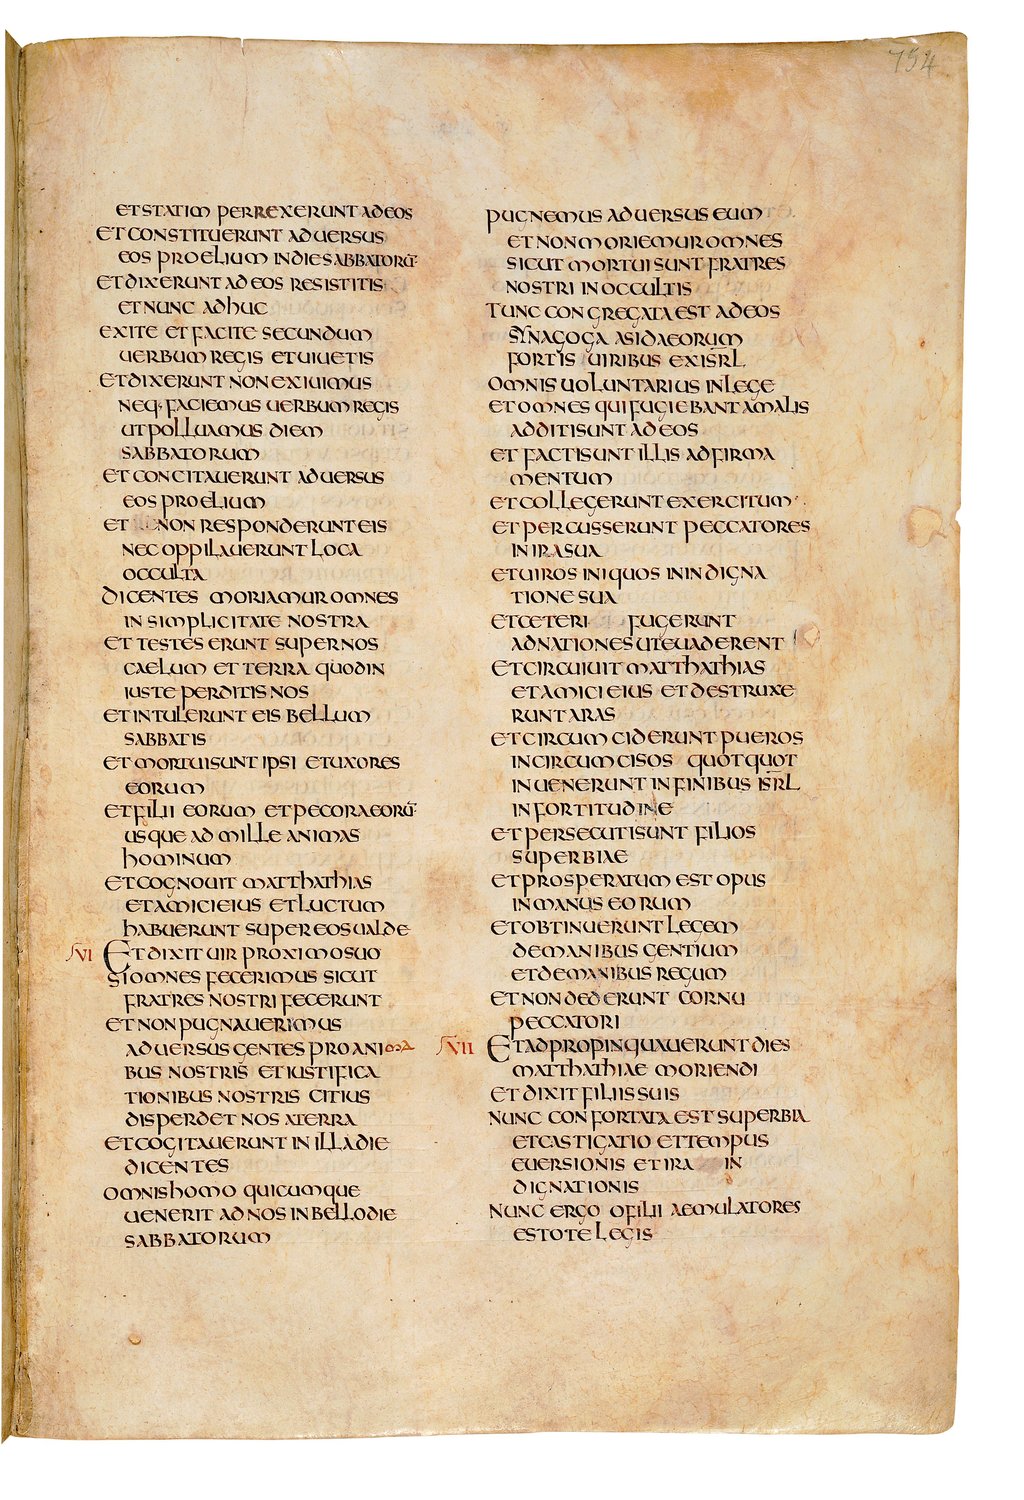 754
ET STATIM PERREXERUNT AD EOS
ET CONSTITUERUNT ADUERSUS
EOS PROELIUM IN DIE SABBATORŪ·
ET DIXERUNT AD EOS RESISTITIS
ET NUNC ADHUC
EXITE ET FACITE SECUNDUM
UERBUM REGIS ET UIUETIS
ET DIXERUNT NON EXIUIMUS
NEQ· FACIEMUS UERBUM REGIS
UT POLLUAMUS DIEM
SABBATORUM
ET CONCITAUERUNT ADUERSUS
EOS PROELIUM
ET NON RESPONDERUNT EIS
NEC OPPILAUERUNT LOCA
OCCULTA
DICENTES MORIAMUR OMNES
IN SIMPLICITATE NOSTRA
ET TESTES ERUNT SUPER NOS
CAELUM ET TERRA QUOD IN
IUSTE PERDITIS NOS
ET INTULERUNT EIS BELLUM
SABBATIS
ET MORTUI SUNT IPSI ET UXORES
EORUM
ET FILII EORUM ET PECORA EORŪ·
USQUE AD MILLE ANIMAS
HOMINUM
ET COGNOUIT MATTHATHIAS
ET AMICI EIUS ET LUCTUM
HABUERUNT SUPER EOS UALDE
S̅VI ET DIXIT UIR PROXIMO SUO
SI OMNES FECERIMUS SICUT
FRATRES NOSTRI FECERUNT
ET NON PUGNAUERIMUS
ADUERSUS GENTES PRO ANIMA
BUS NOSTRIS ET IUSTIFICA
TIONIBUS NOSTRIS CITIUS
DISPERDET NOS A TERRA
ET COGITAUERUNT IN ILLA DIE
DICENTES
OMNIS HOMO QUICUMQUE
UENERIT AD NOS IN BELLO DIE
SABBATORUM
PUGNEMUS ADUERSUS EUM
ET NON MORIEMUR OMNES
SICUT MORTUI SUNT FRATRES
NOSTRI IN OCCULTIS
TUNC CONGREGATA EST AD EOS
SYNAGOGA ASIDAEORUM
FORTIS UIRIBUS EX ISR̅L
OMNIS UOLUNTARIUS IN LEGE
ET OMNES QUI FUGIEBANT A MALIS
ADDITI SUNT AD EOS
ET FACTI SUNT ILLIS AD FIRMA
MENTUM
ET COLLEGERUNT EXERCITUM
ET PERCUSSERUNT PECCATORES
IN IRA SUA
ET UIROS INIQUOS IN INDIGNA
TIONE SUA
ET CETERI FUGERUNT
AD NATIONES UT EUADERENT
ET CIRCUIUIT MATTHATHIAS
ET AMICI EIUS ET DESTRUXE
RUNT ARAS
ET CIRCUMCIDERUNT PUEROS
INCIRCUMCISOS QUOTQUOT
INUENERUNT IN FINIBUS ISR̅L
IN FORTITUDINE
ET PERSECUTI SUNT FILIOS
SUPERBIAE
ET PROSPERATUM EST OPUS
IN MANUS EORUM
ET OBTINUERUNT LEGEM
DE MANIBUS GENTIUM
ET DE MANIBUS REGUM
ET NON DEDERUNT CORNU
PECCATORI
S̅VII ET ADPROPINQUAUERUNT DIES
MATTHATHIAE MORIENDI
ET DIXIT FILIIS SUIS
NUNC CONFORTATA EST SUPERBIA
ET CASTIGATIO ET TEMPUS
EUERSIONIS ET IRA IN
DIGNATIONIS
NUNC ERGO O FILII AEMULATORES
ESTOTE LEGIS